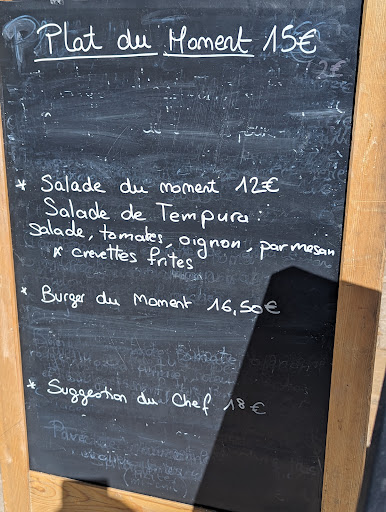 Plat du Moment 15€
* Salade du moment 12€
Salade de Tempura :
salade, tomates, oignon, parmesan
& crevettes frites
* Burger du Moment 16,50€
* Suggestion du Chef 18€